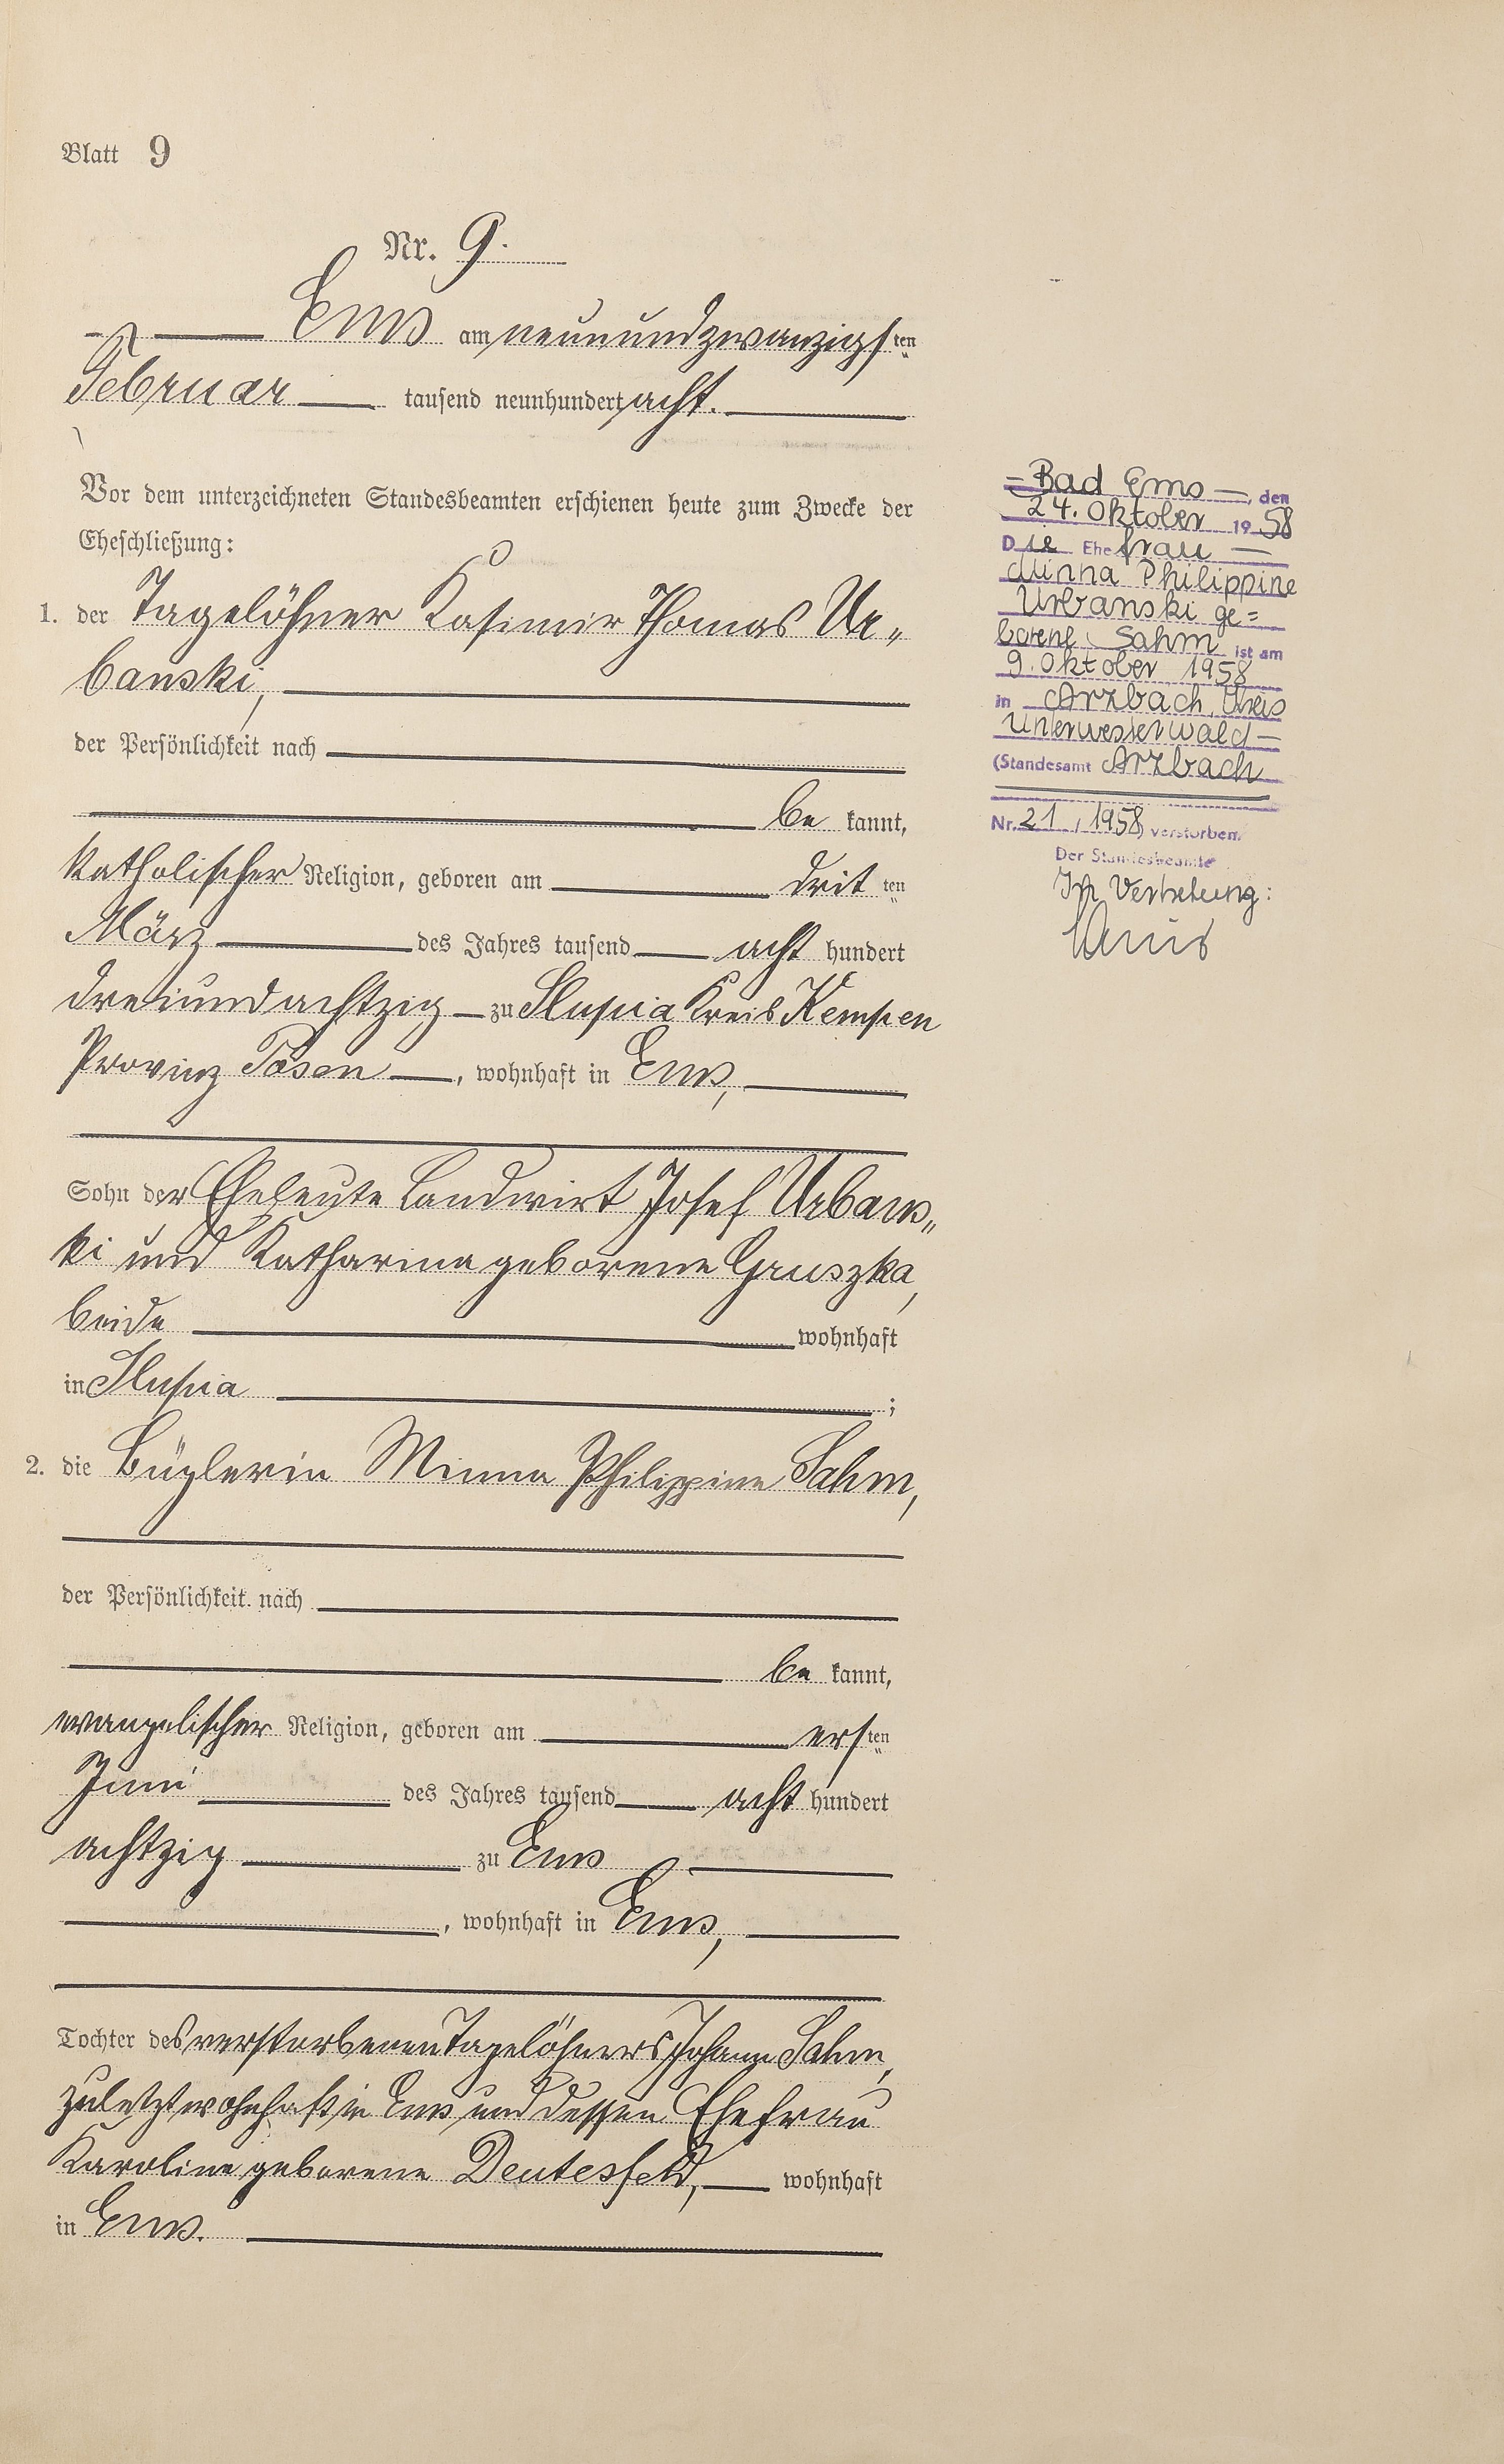 Blatt 9
Nr. 9.
Ems am neunundzwanzigsten
Februar tausend neunhundert acht.
Vor dem unterzeichneten Standesbeamten erschienen heute zum Zwecke der
Eheschließung:
1. der Tagelöhner Kasimir Thomas Ur„
banski,
der Persönlichkeit nach
be kannt,
katholischer Religion, geboren am dritten
März des Jahres tausend acht hundert
dreiundachtzig zu Slupia Kreis Kempen
Provinz Posen, wohnhaft in Ems,
Sohn der Eheleute Landwirt Josef Urbans„
ki und Katharina geborene Gruszka,
beide wohnhaft
in Slupia ;
2. die Büglerin Minna Philippine Sahm,
der Persönlichkeit nach
be kannt,
evangelischer Religion, geboren am ersten
Juni des Jahres tausend acht hundert
achtzig zu Ems
, wohnhaft in Ems,
Tochter des verstorbenen Tagelöhners Johann Sahm,
zuletzt wohnhaft in Ems und dessen Ehefrau
Karoline geborene Deutesfeld, wohnhaft
in Ems.
– Bad Ems –, den
24. Oktober 1958
Die Ehefrau –
Minna Philippine
Urbanski ge=
borene Sahm ist am
9. Oktober 1958
in Arzbach, Kreis
Unterwesterwald –
(Standesamt Arzbach
Nr. 21, 1958) verstorben.
Der Standesbeamte
In Vertretung: